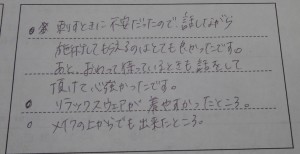 刺すときに不安だったので話しながら
施術してもらえるのはとても良かったです。
あと、おわって待っているときも話をして
頂けて心強かったです。
リラックスウェアが着やすかったところ。
メイクの上からでも出来たところ。